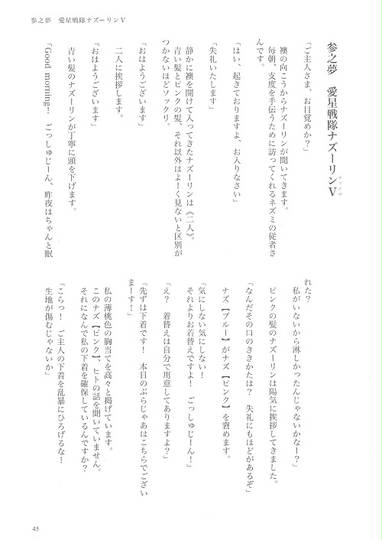 参之夢　愛星戦隊ナズーリンV
参之夢　愛星戦隊ナズーリンV
「ご主人さま、お目覚めか？」
襖の向こうからナズーリンが聞いてきます。
毎朝、支度を手伝うために訪ってくれるネズミの従者さ
んです。
「はい、起きておりますよ、お入りなさい」
「失礼いたします」
静かに襖を開けて入ってきたナズーリンは《二人》。
青い髪とピンクの髪、それ以外はよーく見ないと区別が
つかないほどソックリ。
「おはようございます」
二人に挨拶します。
「おはようございます」
青い髪のナズーリンが丁寧に頭を下げます。
「Good morning！　ごっしゅじーん、昨夜はちゃんと眠
れた？
私がいないから淋しかったんじゃないかなー？」
ピンクの髪のナズーリンは陽気に挨拶してきました。
「なんだその口のききかたは？　失礼にもほどがあるぞ」
ナズ【ブルー】がナズ【ピンク】を窘めます。
「気にしない気にしない！
それよりお着替えですよ！　ごっしゅじーん！」
「え？　着替えは自分で用意してありますよ？」
「先ずは下着です！　本日のぶらじゃあはこちらでござい
まーす！」
私の薄桃色の胸当てを高々と掲げています。
このナズ【ピンク】、ヒトの話を聞いていません。
それになんで私の下着を確保しているんですか？
「こらっ！　ご主人の下着を乱暴にひろげるな！
生地が傷むじゃないか」
45